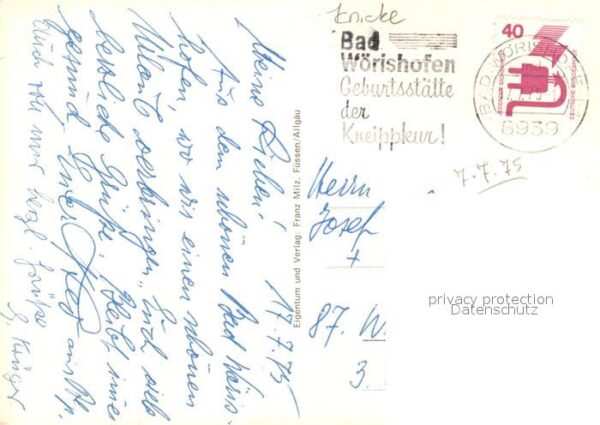 Knicke
Bad
Wörishofen
Geburtsstätte
der
Kneippkur!
40
DEUTSCHE BUNDESPOST
BAD WÖRISHOFEN
8939
7.7.75
17.7.75
Meine Lieben!
Aus dem schönen Bad Wöris-
hofen, wo wir einen schönen
Urlaub verbringen, Euch viele
herzliche Grüße. Bleibt immer
gesund Euer
Auch von mir herzl. Grüße
G. Krüger
Eigentum und Verlag: Franz Milz, Füssen/Allgäu
Herrn
Josef
+
87. W
3.
privacy protection
Datenschutz